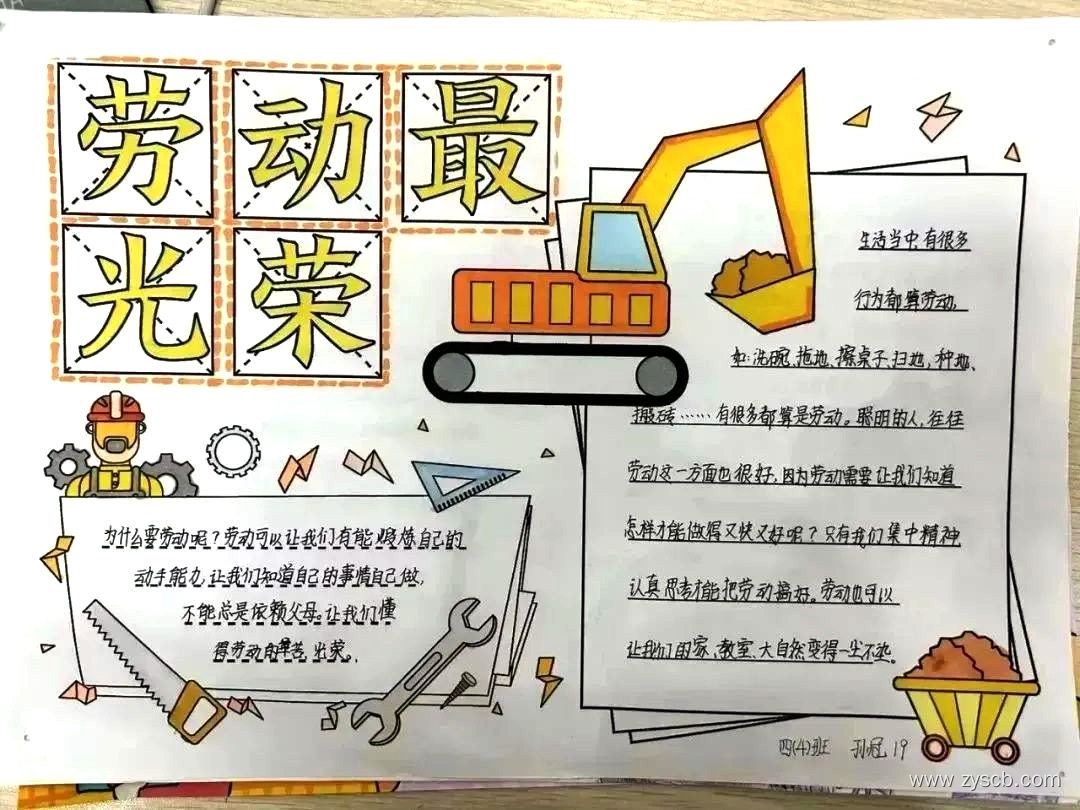 劳动最
光荣
生活当中,有很多
行为都算劳动,
如:洗碗、拖地、擦桌子、扫地,种地、
搬砖……有很多都算是劳动。聪明的人,往往
劳动这一方面也很好,因为劳动需要让我们知道
怎样才能做得又快又好呢?只有我们集中精神
认真思考才能把劳动搞好。劳动也可以
让我们的家、教室、大自然变得一尘不染。
为什么要劳动呢?劳动可以让我们有能煅炼自己的
动手能力,让我们知道自己的事情自己做,
不能总是依赖父母。让我们懂
得劳动的苦、光荣。
四(4)班 孙冠 19
www.zyscb.com